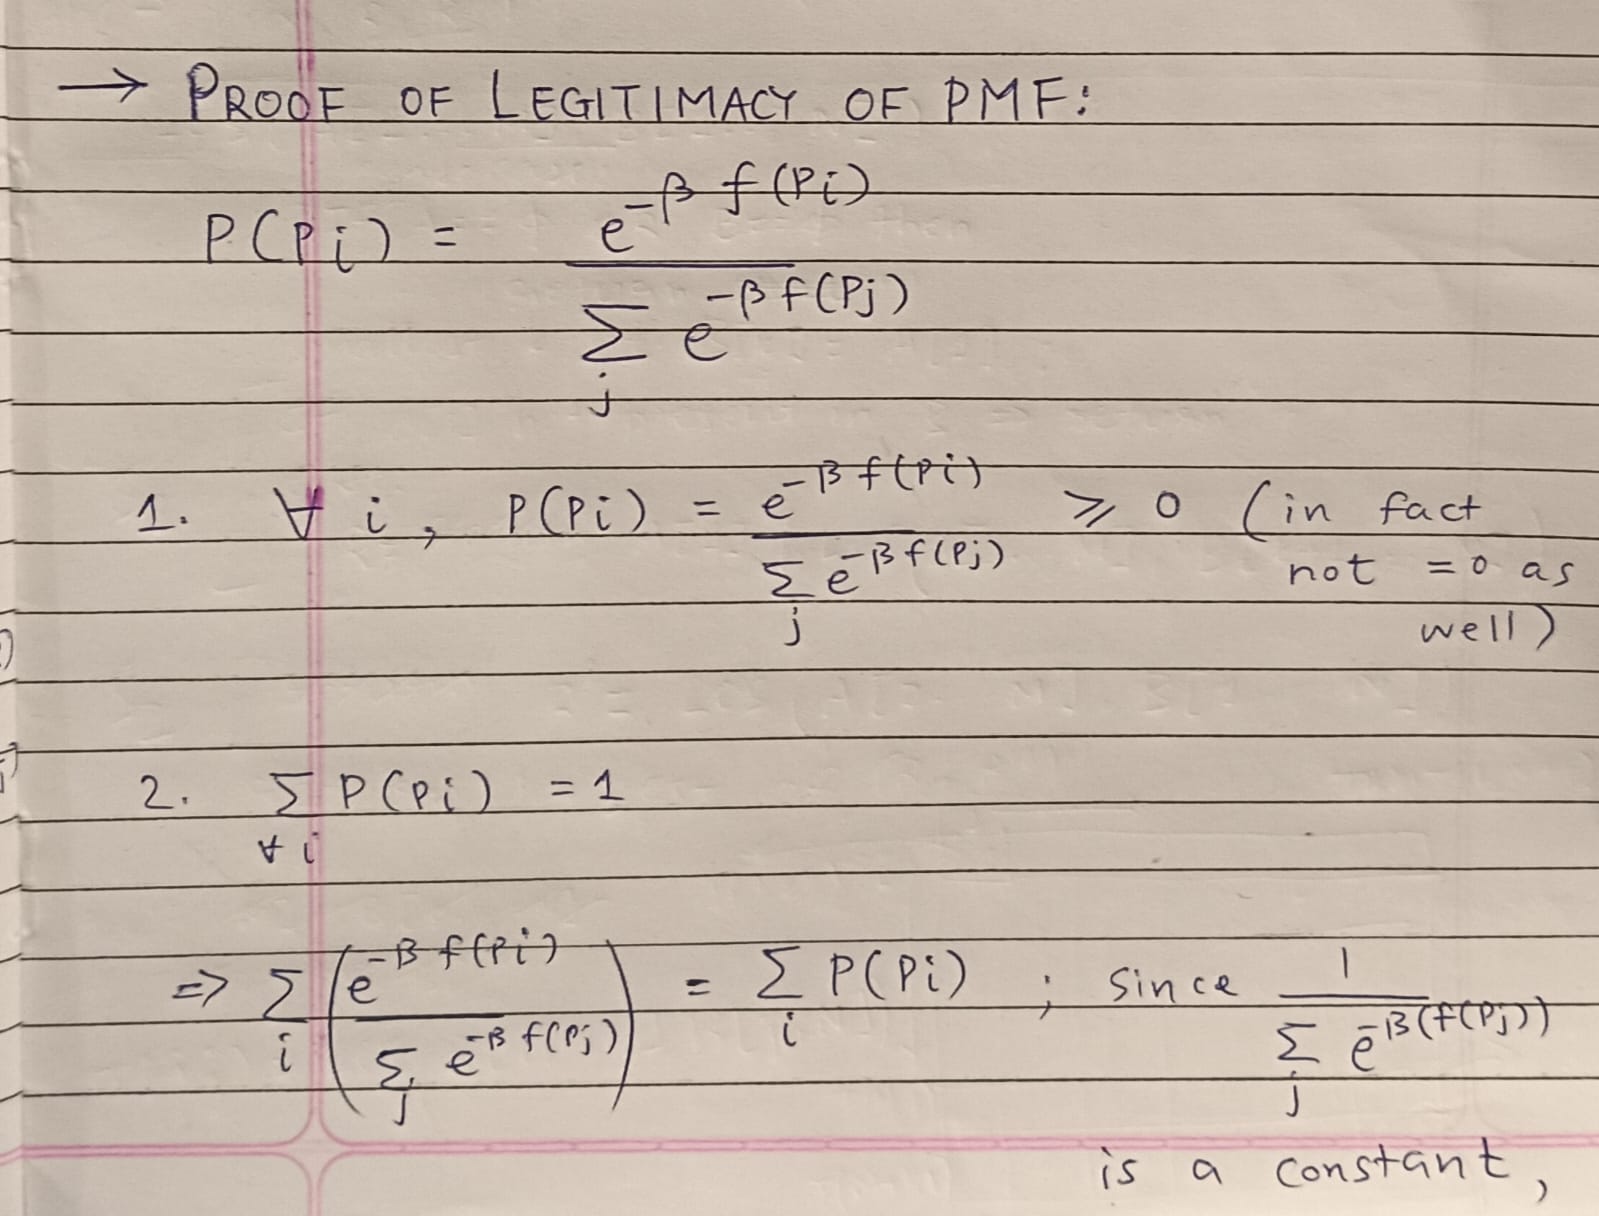 → PROOF OF LEGITIMACY OF PMF:
P(Pi) = e^{-β f(Pi)} / Σ_j e^{-β f(Pj)}
1. ∀ i, P(Pi) = e^{-β f(Pi)} / Σ_j e^{-β f(Pj)} ⩾ 0 (in fact
not = 0 as
well)
2. Σ_{∀ i} P(Pi) = 1
=> Σ_i ( e^{-β f(Pi)} / Σ_j e^{-β f(Pj)} ) = Σ_i P(Pi) ; since 1 / Σ_j e^{-β(f(Pj))}
is a constant,